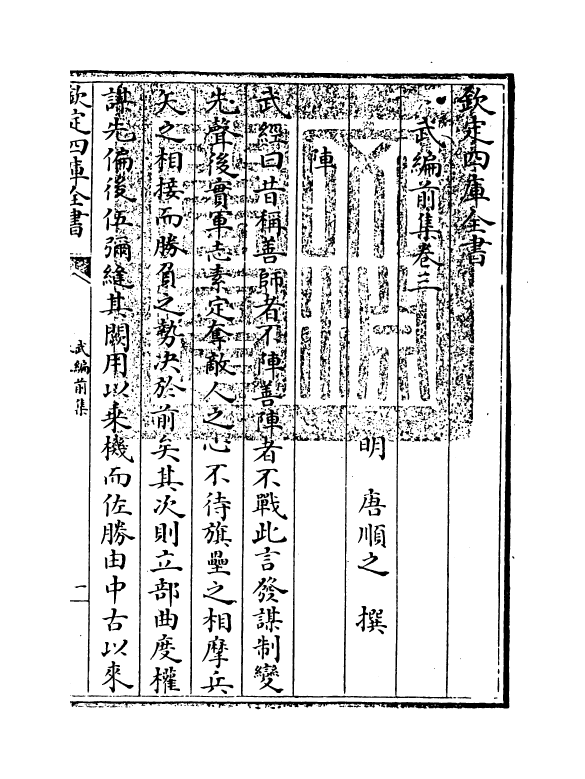 欽定四庫全書
武編前集卷三
明 唐順之 撰
陣
武經曰昔稱善師者不陣善陣者不戰此言發謀制變
先聲後實軍志素定奪敵人之心不待旗壘之相摩兵
矢之相接而勝負之勢决於前矣其次則立部曲度權
謀先偏後伍彌縫其闕用以乗機而佐勝由中古以來
欽定四庫全書
武編前集